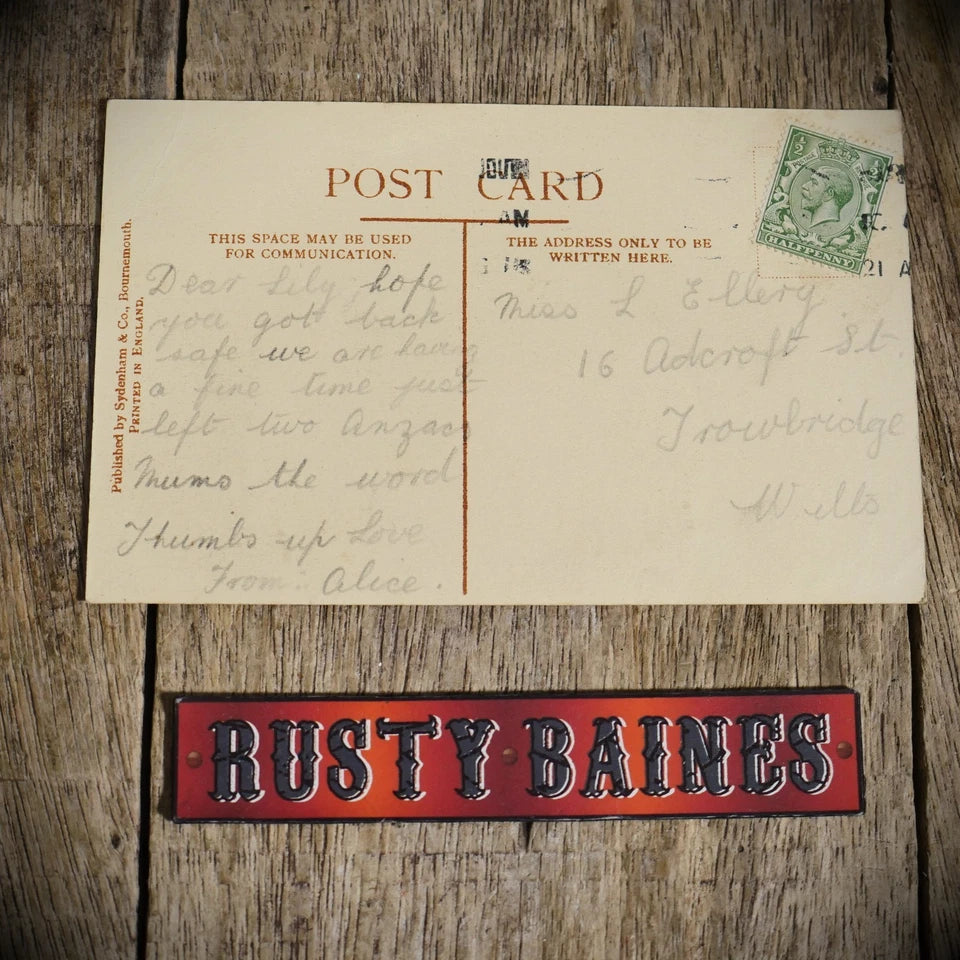 POST CARD
AM
THIS SPACE MAY BE USED
FOR COMMUNICATION.
THE ADDRESS ONLY TO BE
WRITTEN HERE.
½ ½
HALFPENNY
21 A
Published by Sydenham & Co., Bournemouth.
PRINTED IN ENGLAND.
Dear Lily hope
you got back
safe we are having
a fine time just
left two Anzacs
Mums the word
Thumbs up Love
From Alice.
Miss L Ellery
16 Adcroft St.
Trowbridge
Wilts
RUSTY BAINES